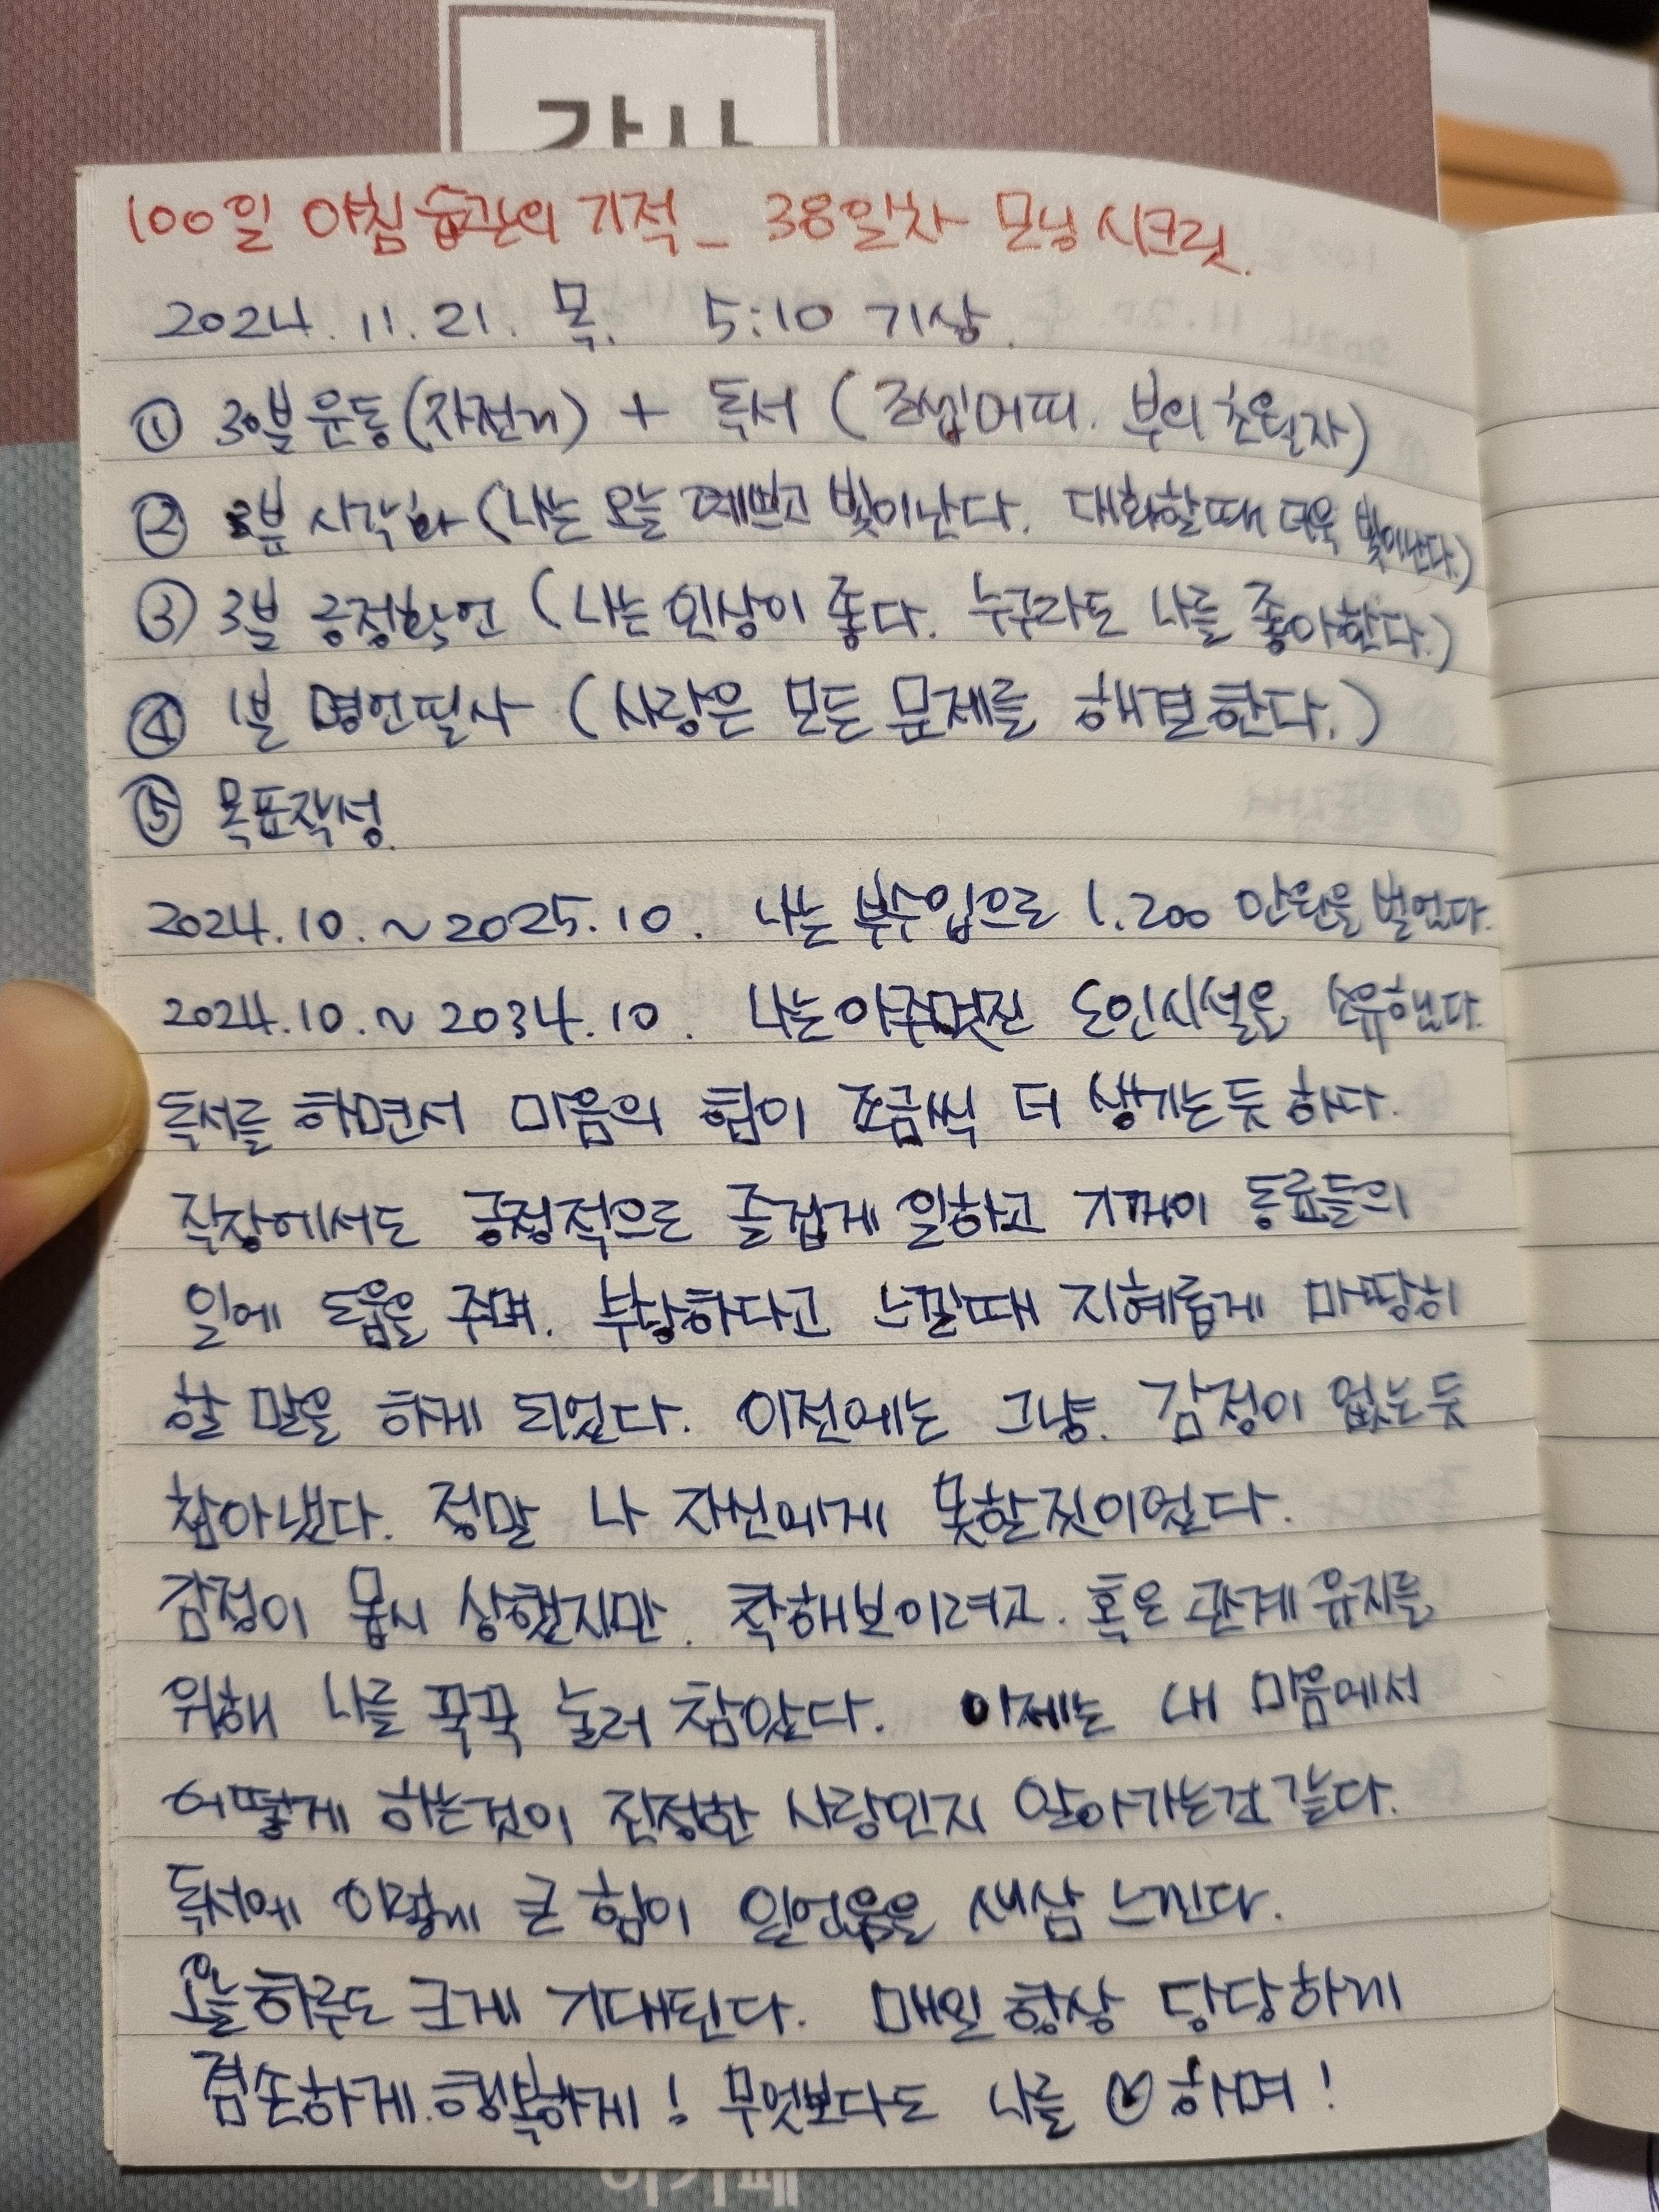 감사
100일 아침습관의 기적_ 38일차 모닝시크릿.
2024. 11. 21. 목. 5:10 기상.
① 30분 운동(자전거) + 독서 (조셉머피. 부의 초월자)
② 2분 시각화 (나는 오늘 예쁘고 빛이난다. 대화할때 더욱 빛이난다.)
③ 3분 긍정확언 (나는 인상이 좋다. 누구라도 나를 좋아한다.)
④ 1분 명언필사 (사랑은 모든 문제를 해결한다.)
⑤ 목표작성.
2024.10. ~ 2025.10. 나는 부수입으로 1.200 만원을 벌었다.
2024.10. ~ 2034.10. 나는 아주멋진 도인시설을 소유했다.
독서를 하면서 마음의 힘이 조금씩 더 생기는듯 하다.
직장에서도 긍정적으로 즐겁게 일하고 기꺼이 동료들의
일에 도움을 주며. 부당하다고 느낄때 지혜롭게 마땅히
할 말을 하게 되었다. 이전에는 그냥. 감정이 없는듯
참아냈다. 정말 나 자신에게 못할짓이었다.
감정이 몹시 상했지만. 착해보이려고. 혹은 관계 유지를
위해 나를 꾹꾹 눌러 참았다. 이제는 내 마음에서
어떻게 하는것이 진정한 사랑인지 알아가는것 같다.
독서에 이렇게 큰 힘이 있었음을 새삼 느낀다.
오늘하루도 크게 기대된다. 매일 항상 당당하게
겸손하게. 행복하게! 무엇보다도 나를 하며!